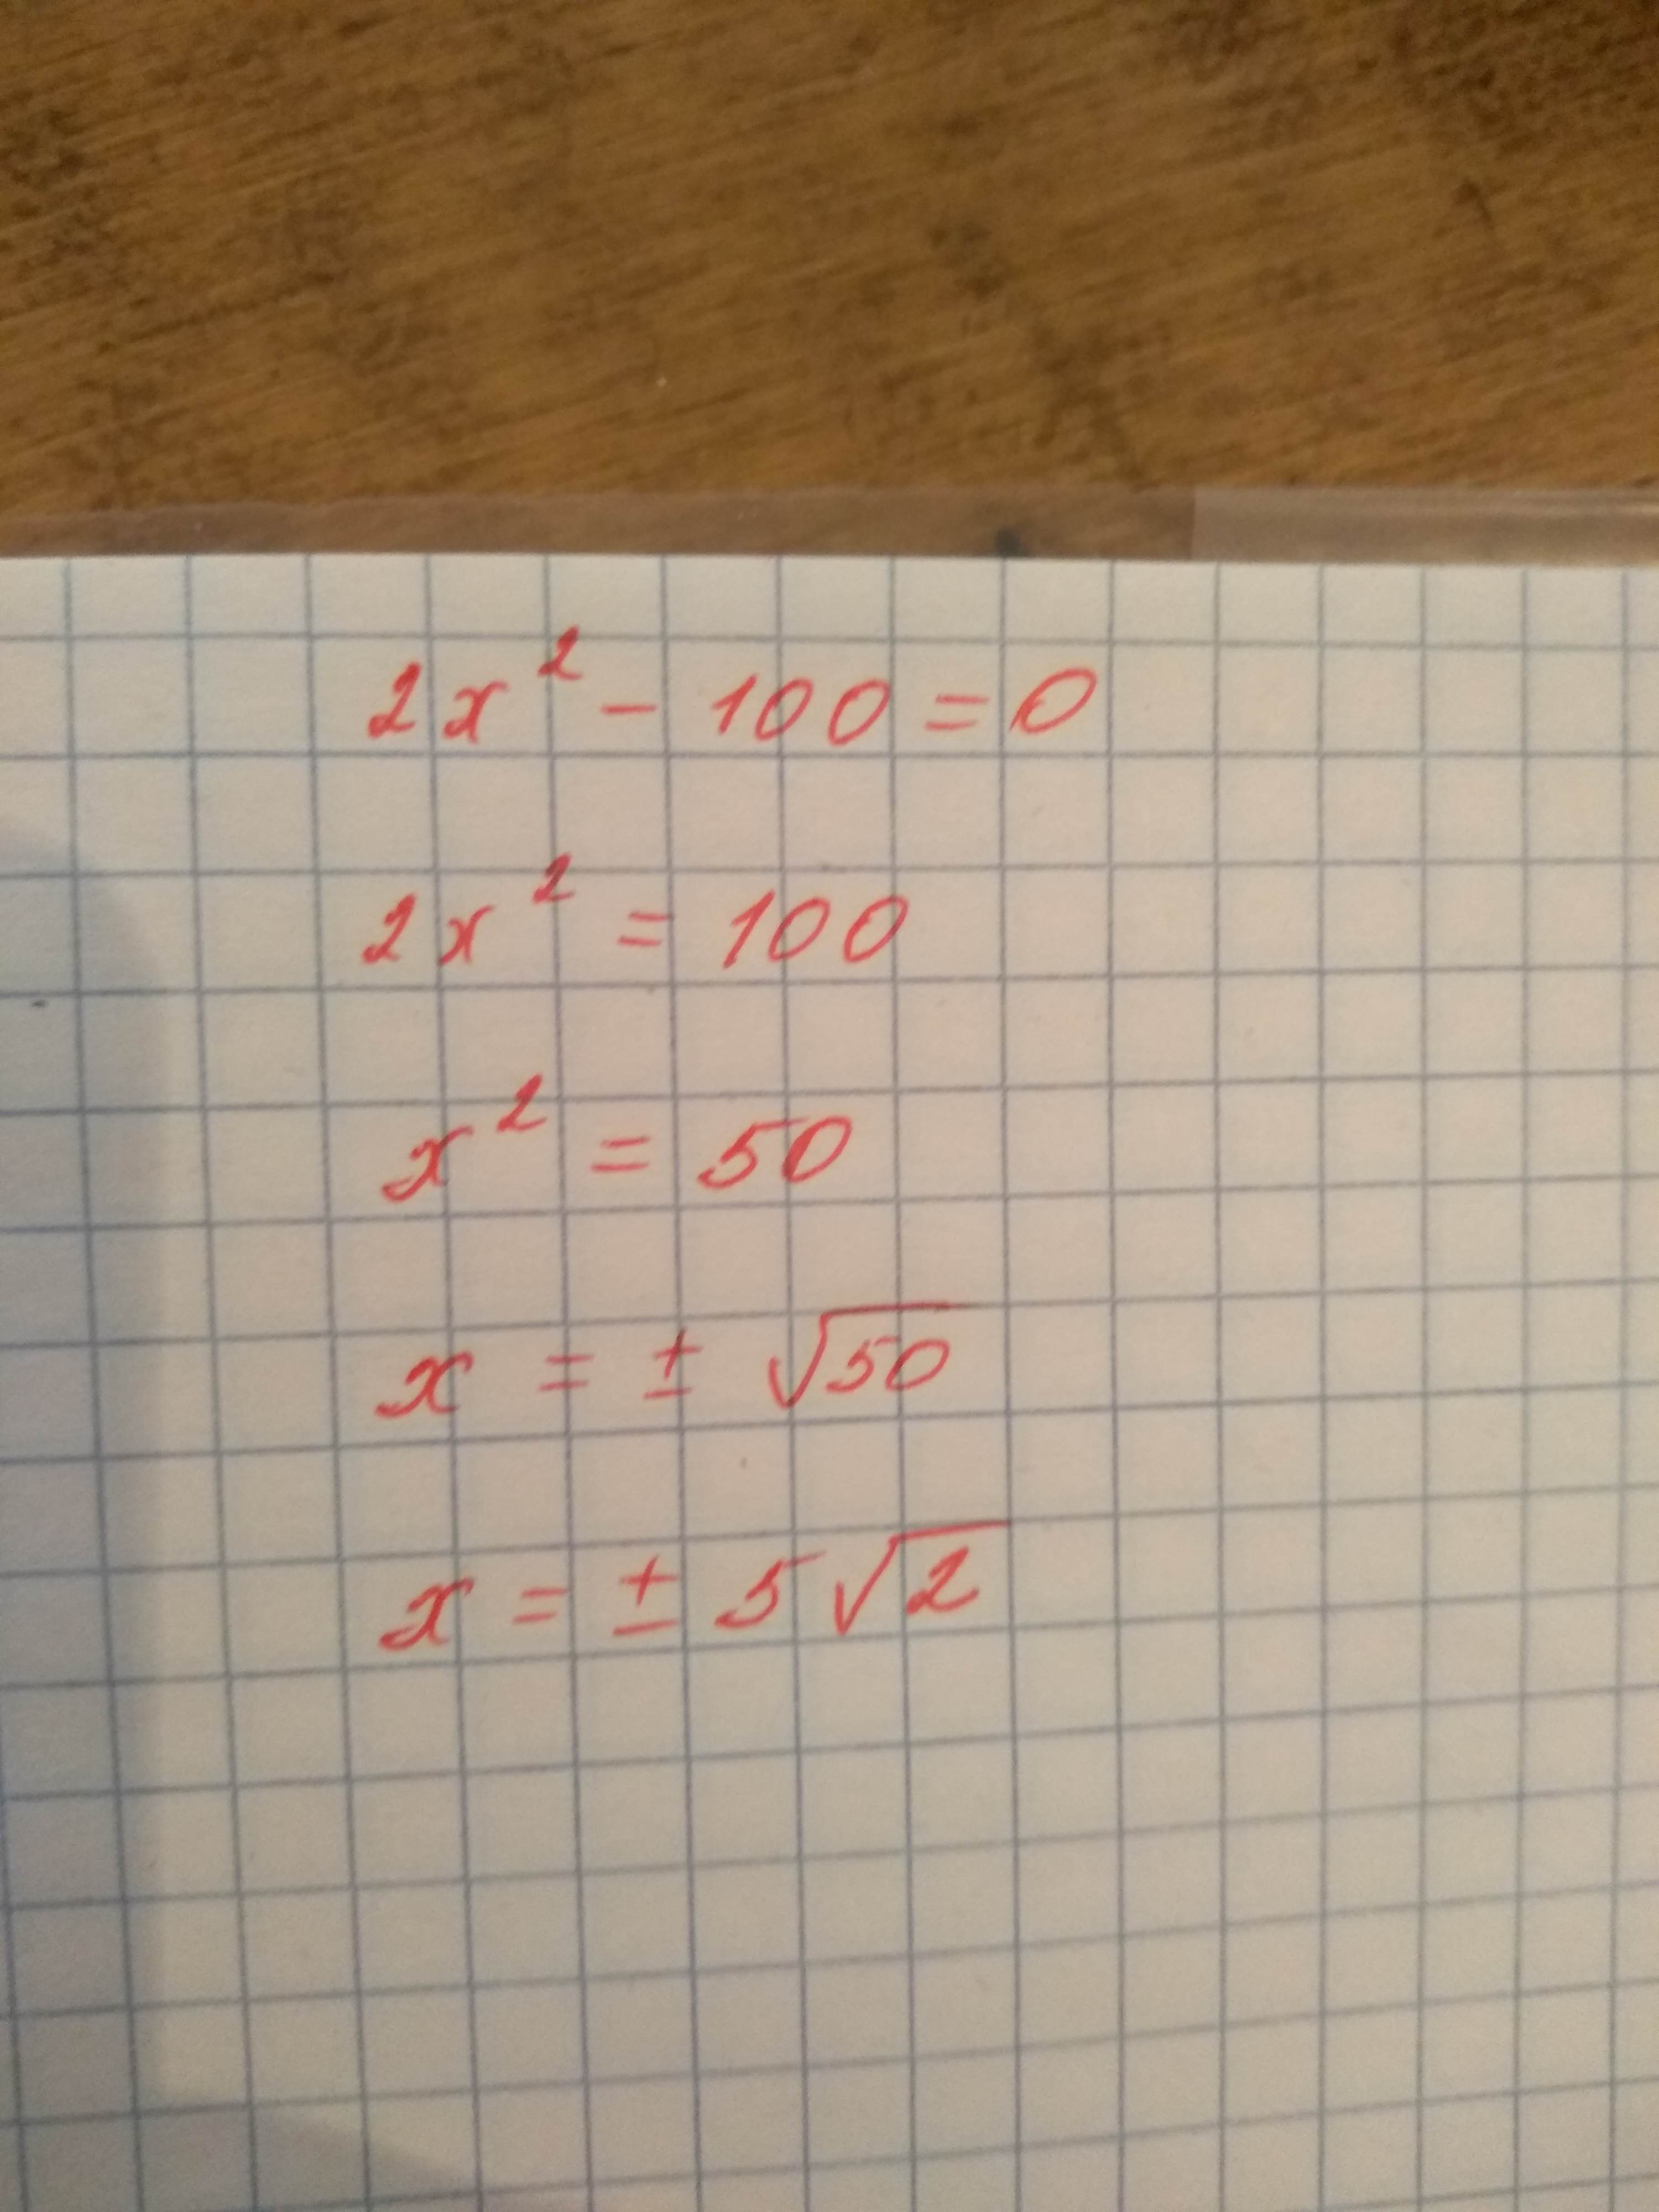 2x² - 100 = 0
2x² = 100
x² = 50
x = ± √50
x = ± 5√2